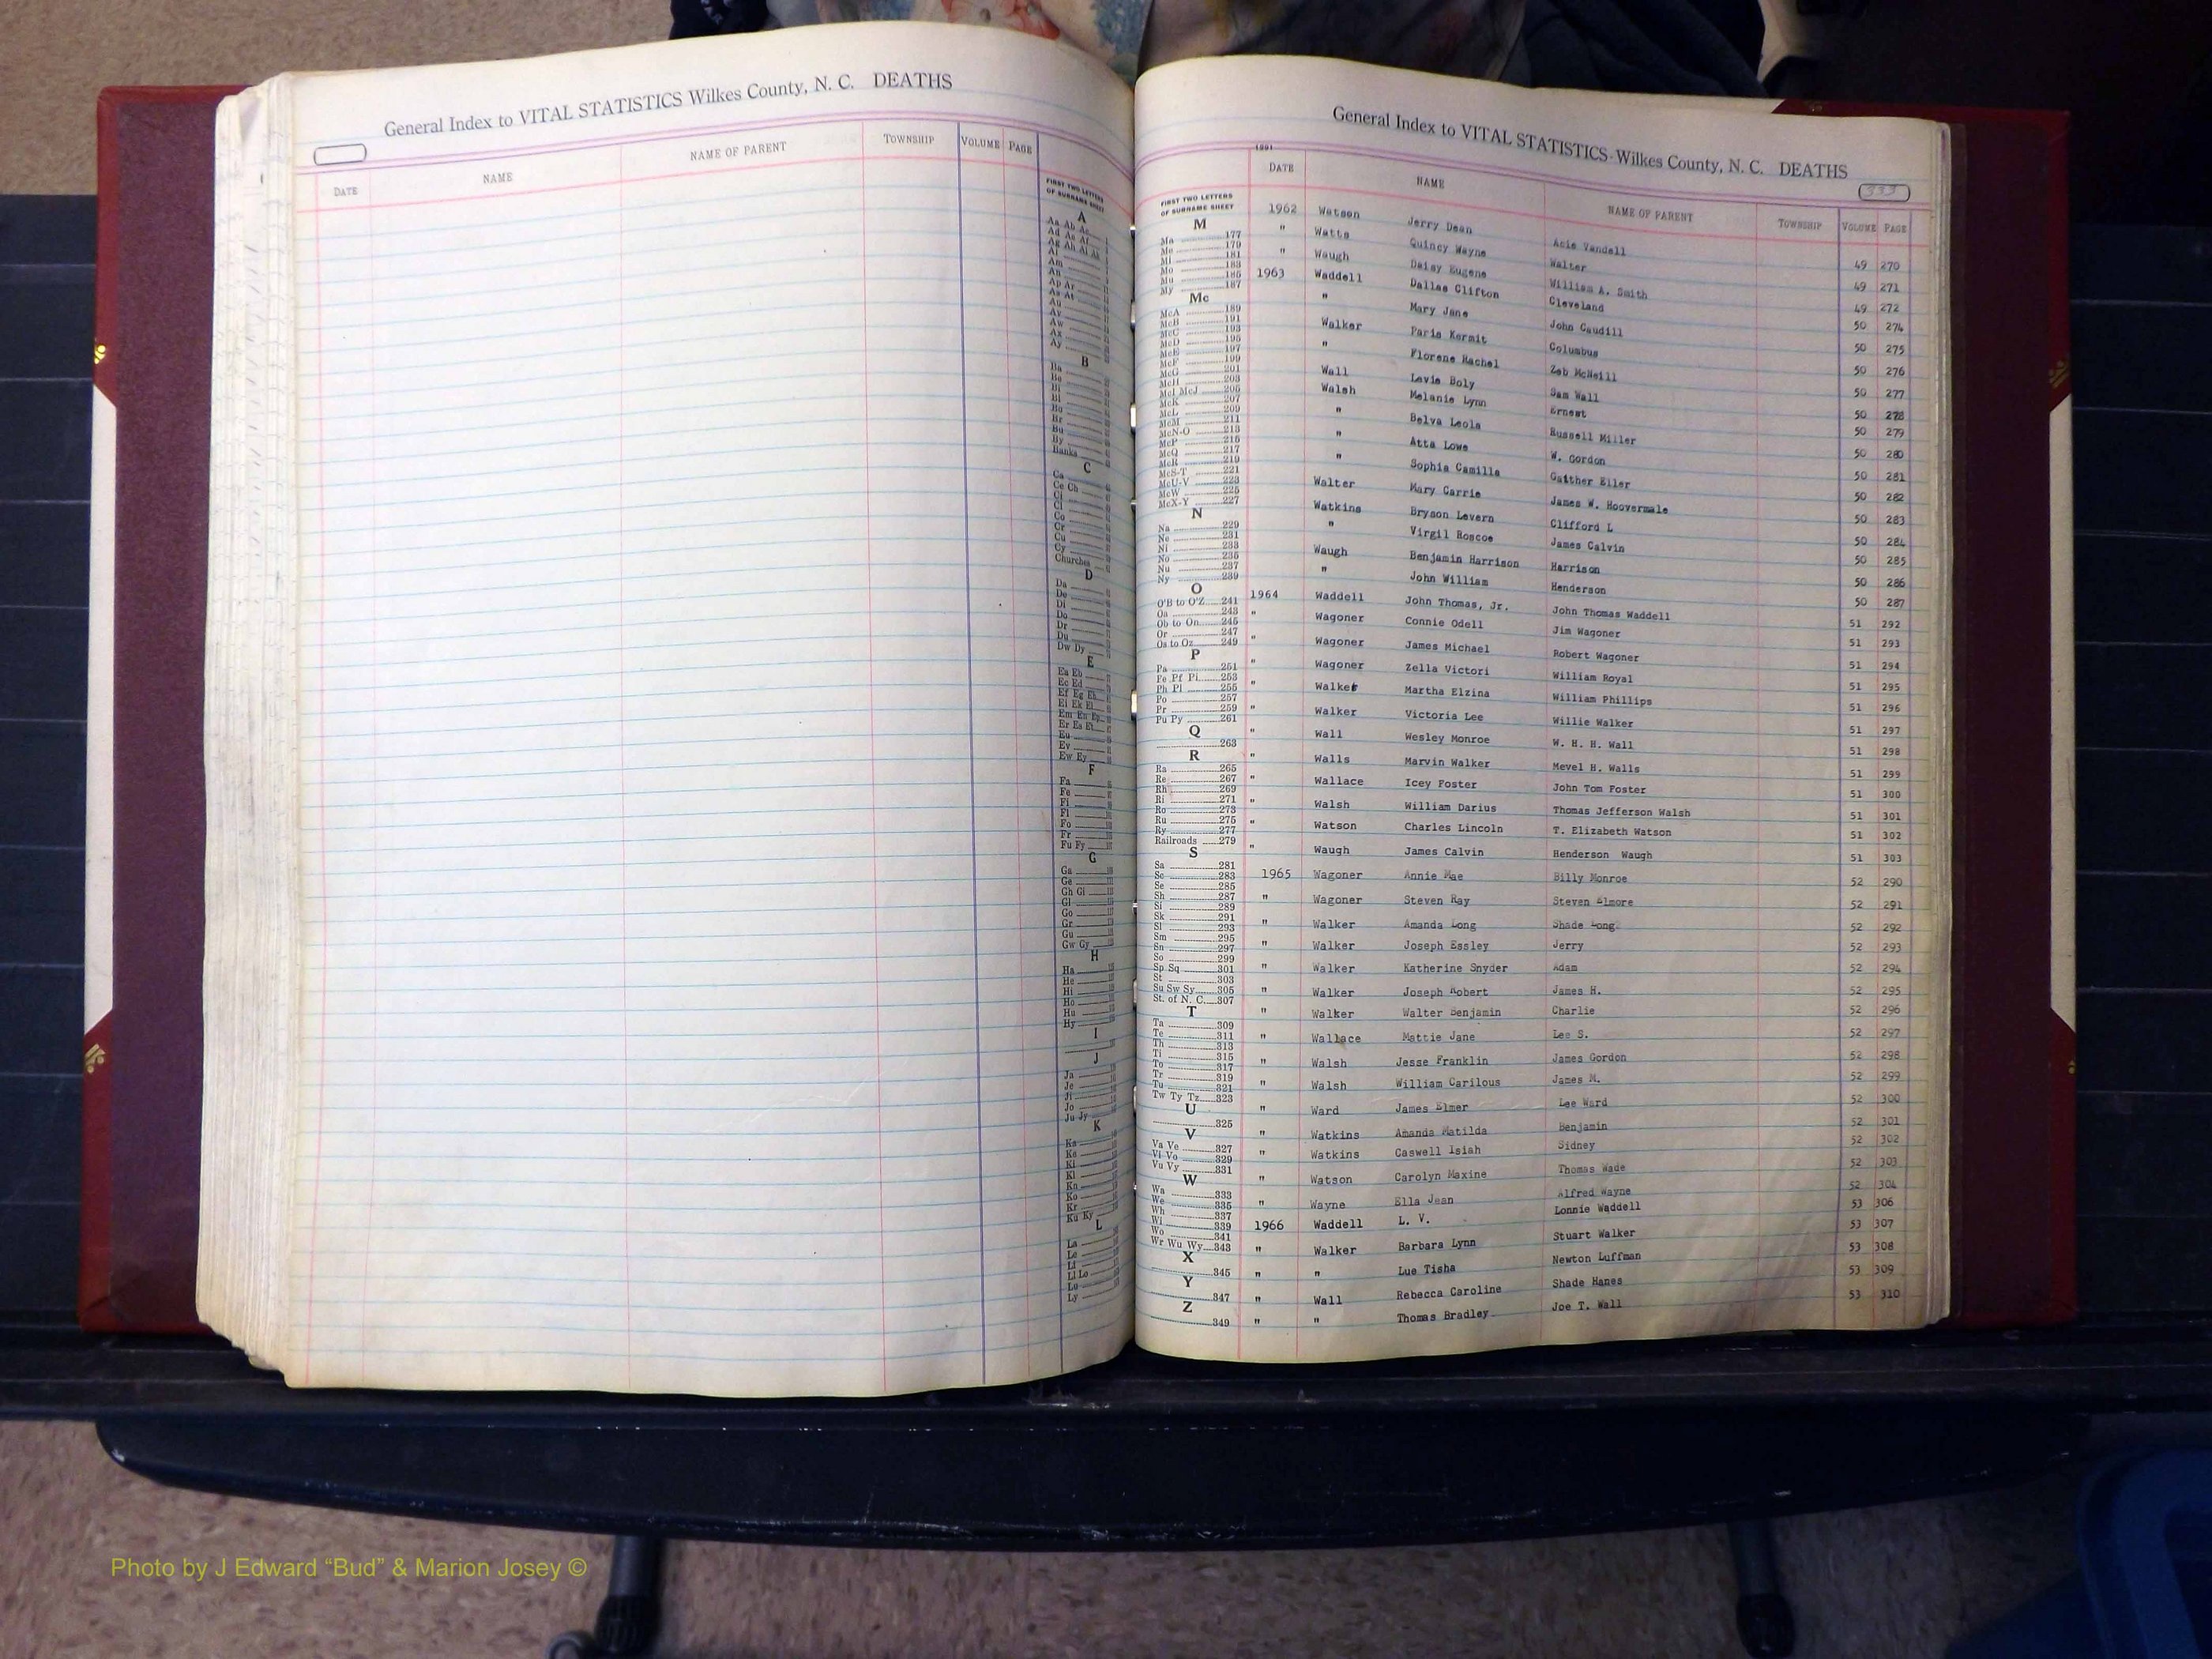 General Index to VITAL STATISTICS Wilkes County, N. C. DEATHS
DATE NAME NAME OF PARENT TOWNSHIP VOLUME PAGE
FIRST TWO LETTERS
OF SURNAME SHEET
A
Aa Ab Ac
Ad Ae Af
Ag Ah Ai Ak
Al
Am
An
Ap Ar
As At
Au
Av
Aw
Ax
Ay
B
Ba
Be
Bi
Bl
Bo
Br
Bu
By
Banks
C
Ca
Ce Ch
Ci
Cl
Co
Cr
Cu
Cy
Churches
D
Da
De
Di
Do
Dr
Du
Dw Dy
E
Ea Eb
Ec Ed
Ef Eg Eh
Ei Ek El
Em En Ep
Er Es Et
Eu
Ev
Ew Ey
F
Fa
Fe
Fi
Fl
Fo
Fr
Fu Fy
G
Ga
Ge
Gh Gi
Gl
Go
Gr
Gu
Gw Gy
H
Ha
He
Hi
Ho
Hu
Hy
I
J
Ja
Je
Ji
Jo
Ju Jy
K
Ka
Ke
Ki
Kl
Kn
Ko
Kr
Ku Ky
L
La
Le
Li
Ll Lo
Lu
Ly
General Index to VITAL STATISTICS-Wilkes County, N. C. DEATHS
333
DATE NAME NAME OF PARENT TOWNSHIP VOLUME PAGE
FIRST TWO LETTERS
OF SURNAME SHEET
M
Ma 177
Me 179
Mi 181
Mo 183
Mu 185
My 187
Mc
McA 189
McB 191
McC 193
McD 195
McE 197
McF 199
McG 201
McH 203
McI McJ 205
McK 207
McL 209
McM 211
McN-O 213
McP 215
McQ 217
McR 219
McS-T 221
McU-V 223
McW 225
McX-Y 227
N
Na 229
Ne 231
Ni 233
No 235
Nu 237
Ny 239
O
O'B to O'Z 241
Oa 243
Ob to On 245
Or 247
Os to Oz 249
P
Pa 251
Pe Pf Pi 253
Ph Pl 255
Po 257
Pr 259
Pu Py 261
Q
263
R
Ra 265
Re 267
Rh 269
Ri 271
Ro 273
Ru 275
Ry 277
Railroads 279
S
Sa 281
Sc 283
Se 285
Sh 287
Si 289
Sk 291
Sl 293
Sm 295
Sn 297
So 299
Sp Sq 301
St 303
Su Sw Sy 305
St. of N. C. 307
T
Ta 309
Te 311
Th 313
Ti 315
To 317
Tr 319
Tu 321
Tw Ty Tz 323
U
325
V
Va Ve 327
Vi Vo 329
Vu Vy 331
W
Wa 333
We 335
Wh 337
Wi 339
Wo 341
Wr Wu Wy 343
X
345
Y
347
Z
349
1962 Watson Jerry Dean Acie Vandell 49 270
" Watts Quincy Wayne Walter 49 271
" Waugh Daisy Eugene William A. Smith 49 272
1963 Waddell Dallas Clifton Cleveland 50 274
" Mary Jane John Caudill 50 275
Walker Paris Kermit Columbus 50 276
" Florene Rachel Zeb McNeill 50 277
Wall Levie Boly Sam Wall 50 278
Walsh Melanie Lynn Ernest 50 279
" Belva Leola Russell Miller 50 280
" Atta Lowe W. Gordon 50 281
" Sophia Camilla Gaither Eller 50 282
Walter Mary Carrie James W. Hoovermale 50 283
Watkins Bryson Levern Clifford L 50 284
" Virgil Roscoe James Calvin 50 285
Waugh Benjamin Harrison Harrison 50 286
" John William Henderson 50 287
1964 Waddell John Thomas, Jr. John Thomas Waddell 51 292
" Wagoner Connie Odell Jim Wagoner 51 293
" Wagoner James Michael Robert Wagoner 51 294
" Wagoner Zella Victori William Royal 51 295
" Walker Martha Elzina William Phillips 51 296
" Walker Victoria Lee Willie Walker 51 297
" Wall Wesley Monroe W. H. H. Wall 51 298
" Walls Marvin Walker Mevel H. Walls 51 299
" Wallace Icey Foster John Tom Foster 51 300
" Walsh William Darius Thomas Jefferson Walsh 51 301
" Watson Charles Lincoln T. Elizabeth Watson 51 302
" Waugh James Calvin Henderson Waugh 51 303
1965 Wagoner Annie Mae Billy Monroe 52 290
" Wagoner Steven Ray Steven Elmore 52 291
" Walker Amanda Long Shade Long 52 292
" Walker Joseph Essley Jerry 52 293
" Walker Katherine Snyder Adam 52 294
" Walker Joseph Robert James H. 52 295
" Walker Walter Benjamin Charlie 52 296
" Wallace Mattie Jane Lee S. 52 297
" Walsh Jesse Franklin James Gordon 52 298
" Walsh William Carilous James M. 52 299
" Ward James Elmer Lee Ward 52 300
" Watkins Amanda Matilda Benjamin 52 301
" Watkins Caswell Isiah Sidney 52 302
" Watson Carolyn Maxine Thomas Wade 52 303
" Wayne Ella Jean Alfred Wayne 52 304
1966 Waddell L. V. Lonnie Waddell 53 306
" Walker Barbara Lynn Stuart Walker 53 307
" " Lue Tisha Newton Luffman 53 308
" Wall Rebecca Caroline Shade Hanes 53 309
" " Thomas Bradley Joe T. Wall 53 310
Photo by J Edward “Bud” & Marion Josey ©